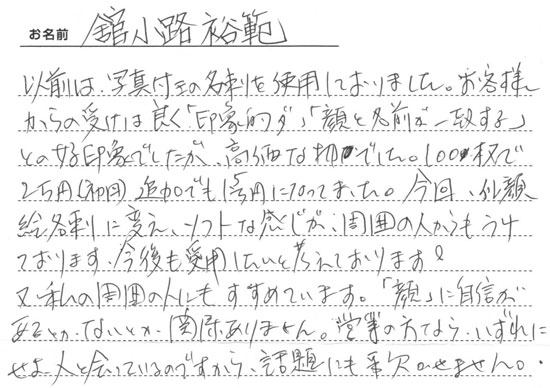 お名前 舘小路裕範
以前は、写真付きの名刺を使用しておりました。お客様
からの受けは良く「印象的ダ」「顔と名前が一致する」
との好印象でしたが、高価な物でした。100枚で
2万円（初回）追加でも1万円になってました。今回、似顔
絵名刺に変え、ソフトな感じが、周囲の人からもうけ
ております、今後も愛用したいと考えております。
又、私の周囲の人にもすすめています。「顔」に自信が
あるとか、ないとか、関係ありません。営業の方なら、いずれに
せよ、人と会っているのですから、話題にも事欠かせません。